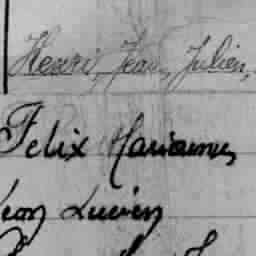 Henri, Jean, Julien,
Felix Marianne,
Leon Lucien